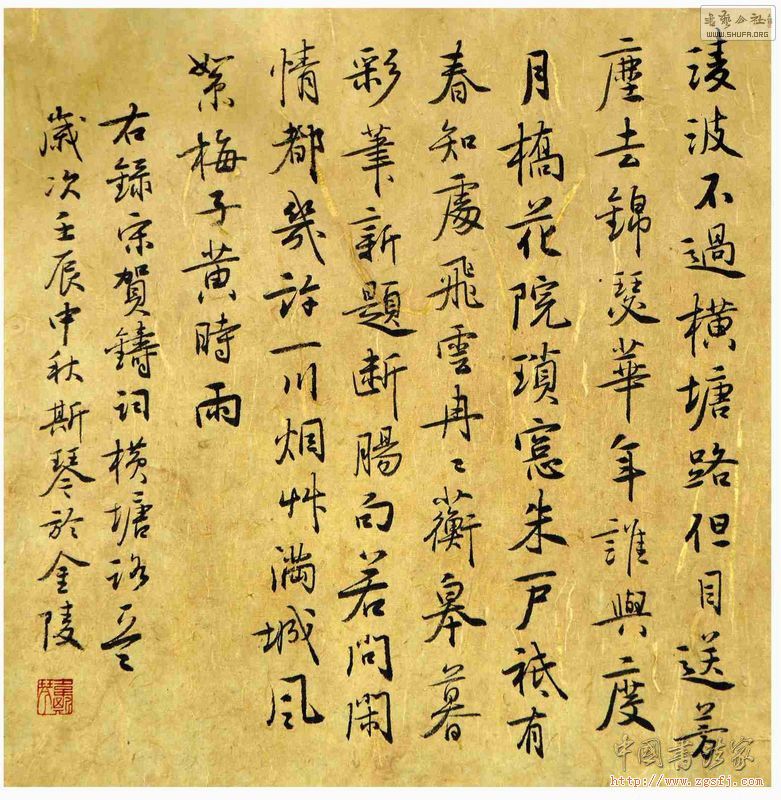 淩波不過橫塘路但目送芳
塵去錦瑟華年誰與度
月橋花院瑣窓朱戶祗有
春知處飛雲冉〻蘅皋暮
彩筆新題断腸句若問閑
情都幾許一川烟艸滿城風
絮梅子黃時雨
右錄宋賀鑄詞横塘路
歲次壬辰中秋斯琴於金陵
書藝公社
WWW.SHUFA.ORG
中國書法家
http://www.zgsfj.c